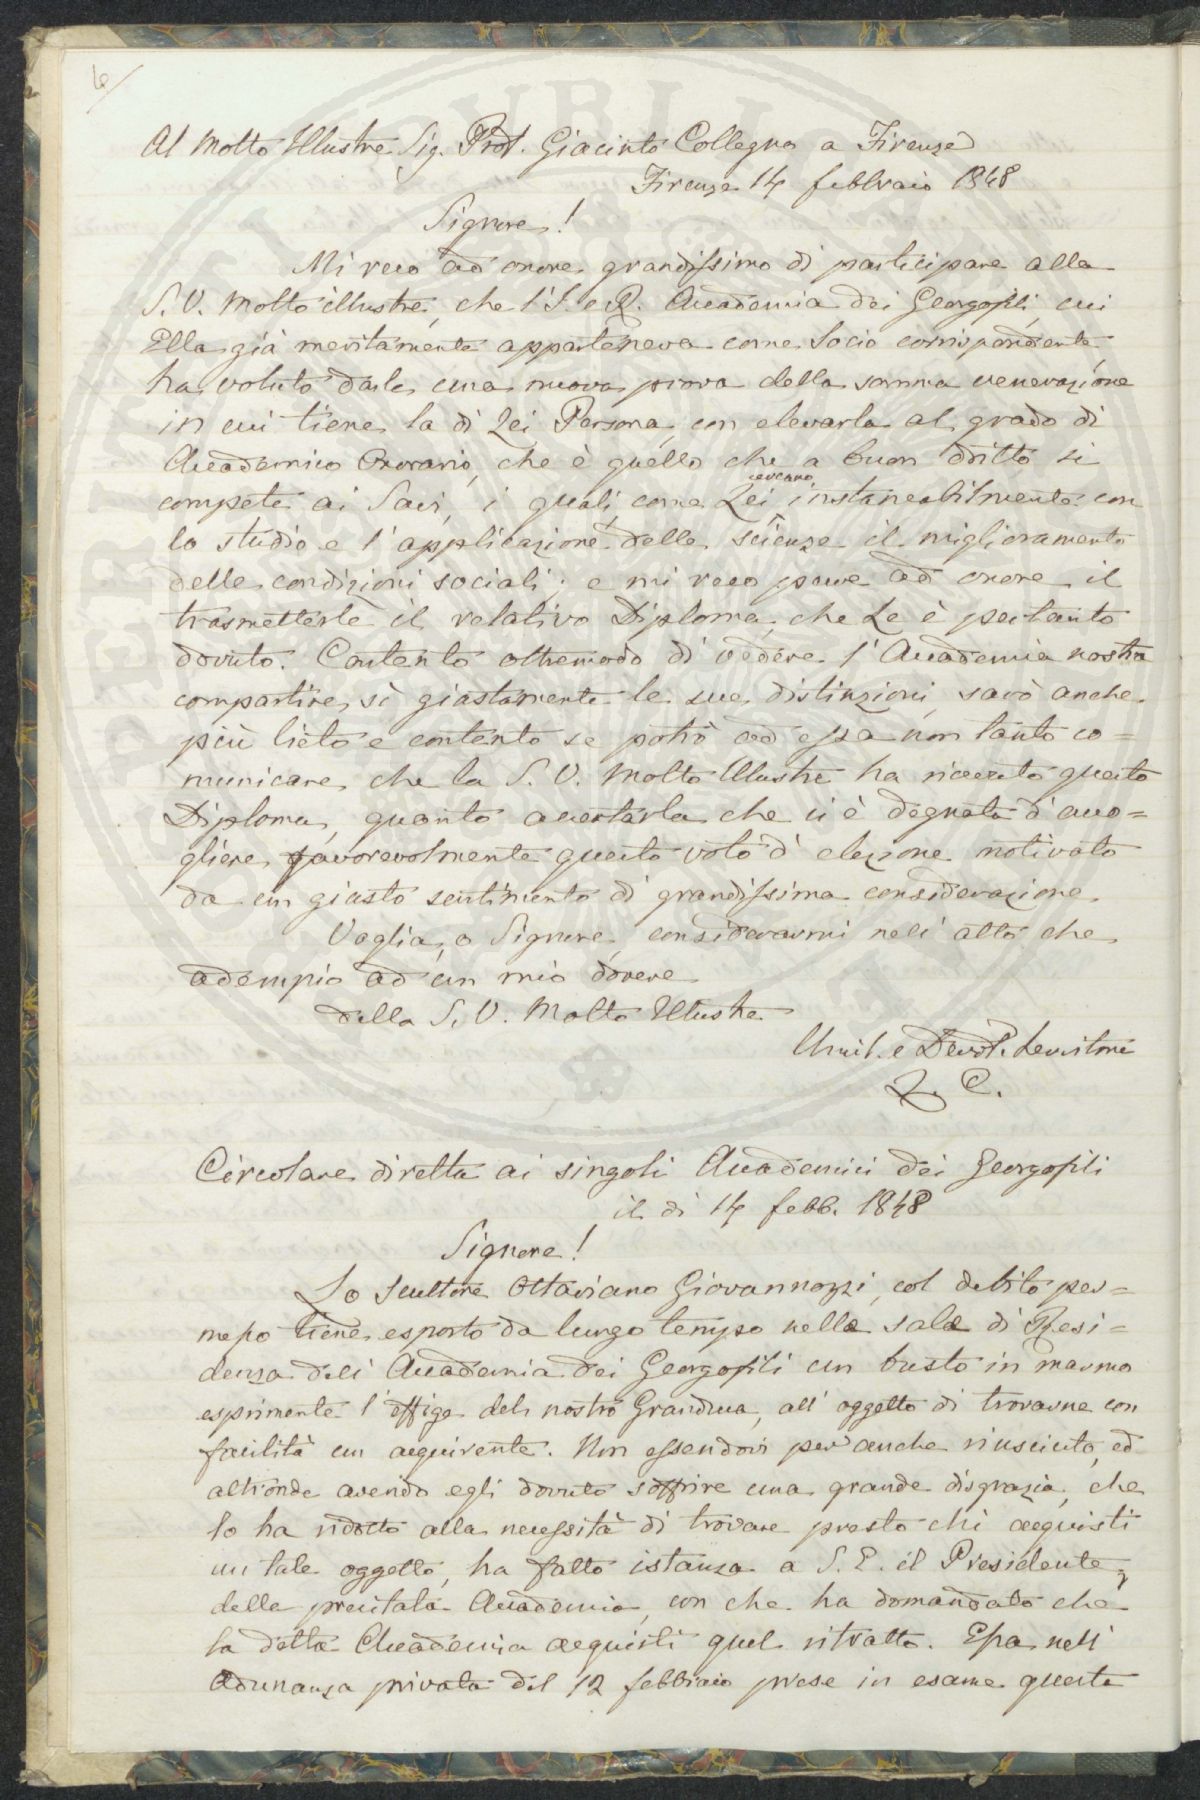 6/
Al Molto Illustre Sig. Prof. Giacinto Collegno a Firenze
Firenze 14 febbraio 1848
Signore!
Mi reco ad onore grandissimo di partecipare alla
S. V. Molto illustre, che l'I. e R. Accademia dei Georgofili, cui
Ella già meritamente apparteneva come Socio corrispondente,
ha voluto darle una nuova prova della somma venerazione
in cui tiene la di Lei Persona, con elevarla al grado di
Accademico Onorario, che è quello che a buon dritto si
compete ai Savi, i quali come Lei cercano instancabilmente con
lo studio e l'applicazione delle scienze il miglioramento
delle condizioni sociali; e mi reco pure ad onore il
trasmetterle il relativo Diploma, che Le è pertanto
dovuto. Contento oltremodo di vedere l'Accademia nostra
compartire sì giustamente le sue distinzioni, sarò anche
più lieto e contento se potrò ad essa non tanto co=
municare, che la S. V. Molto Illustre ha ricevuto questo
Diploma, quanto accertarla che si è degnata d'acco=
gliere favorevolmente questo voto d'elezione motivato
da un giusto sentimento di grandissima considerazione.
Voglia, o Signore, considerarmi nell'atto che
adempio ad un mio dovere
Della S. V. Molto Illustre
Umil. e Devot. Servitore
L. C.
Circolare diretta ai singoli Accademici dei Georgofili
il dì 14 febb. 1848
Signore!
Lo Scultore Ottaviano Giovannozzi, col debito per=
messo tiene esposto da lungo tempo nelle sale di Resi=
denza dell'Accademia dei Georgofili un busto in marmo
esprimente l'effige del nostro Granduca, all'oggetto di trovarne con
facilità un acquirente. Non essendovi per anche riuscito, ed
altronde avendo egli dovuto soffrire una grande disgrazia, che
lo ha ridotto alla necessità di trovare presto chi acquisti
un tale oggetto, ha fatto istanza a S. E. il Presidente
della precitata Accademia, con che ha domandato che
la detta Accademia acquisti quel ritratto. Essa nell'
Adunanza privata del 12 febbraio prese in esame questa